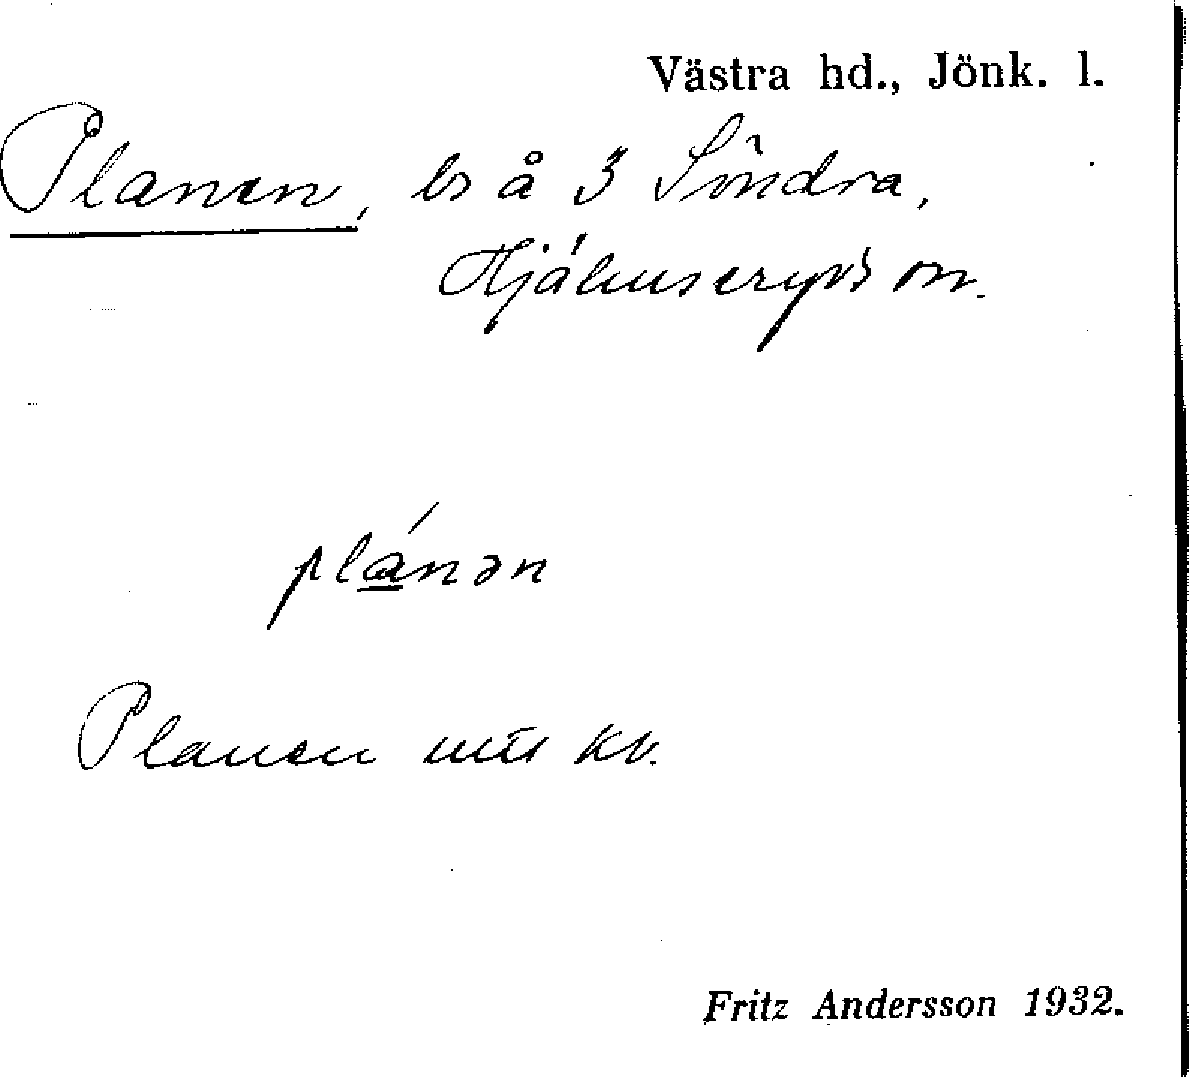 Västra hd., Jönk. l.
Planen, ls å 3 Söndra,
Hjälmseryds sn.
plánən
Planen utts kv.
Fritz Andersson 1932.